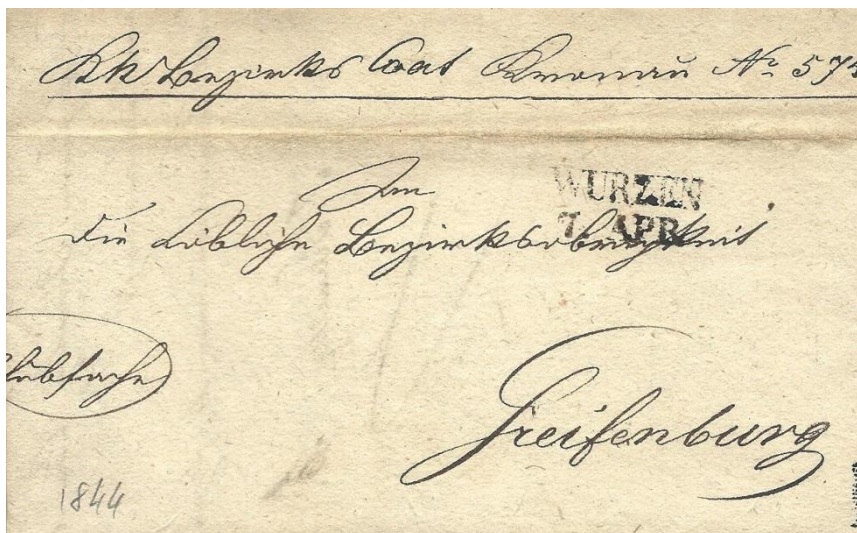 KkBezirks Coat Kronau No 575
An
WURZEN
7. APR.
die Löbliche Bezirksobrigkeit
Greifenburg
1844